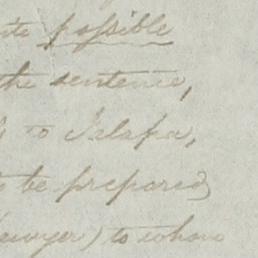 possible
the sentence,
to Jalapa,
to be prepared
lawyer) to whom